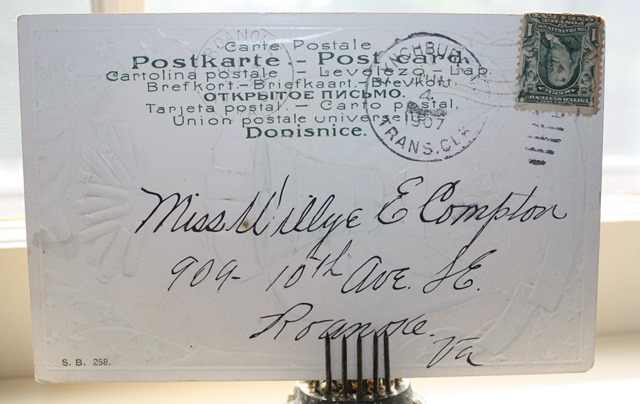 Carte Postale
Postkarte. - Post card.
Cartolina postale - Levelező-Lap.
Brefkort - Briefkaart - Brevkort.
ОТКРЫТОЕ ПИСЬМО.
Tarjeta postal. - Carto postal.
Union postale universelle
Dopisnice.
ROANO
LYNCHBURG
4
1907
TRANS. CLK
1 1
Miss Willye E Compton
909 - 10th Ave. S.E.
Roanoke.
Va
S. B. 258.